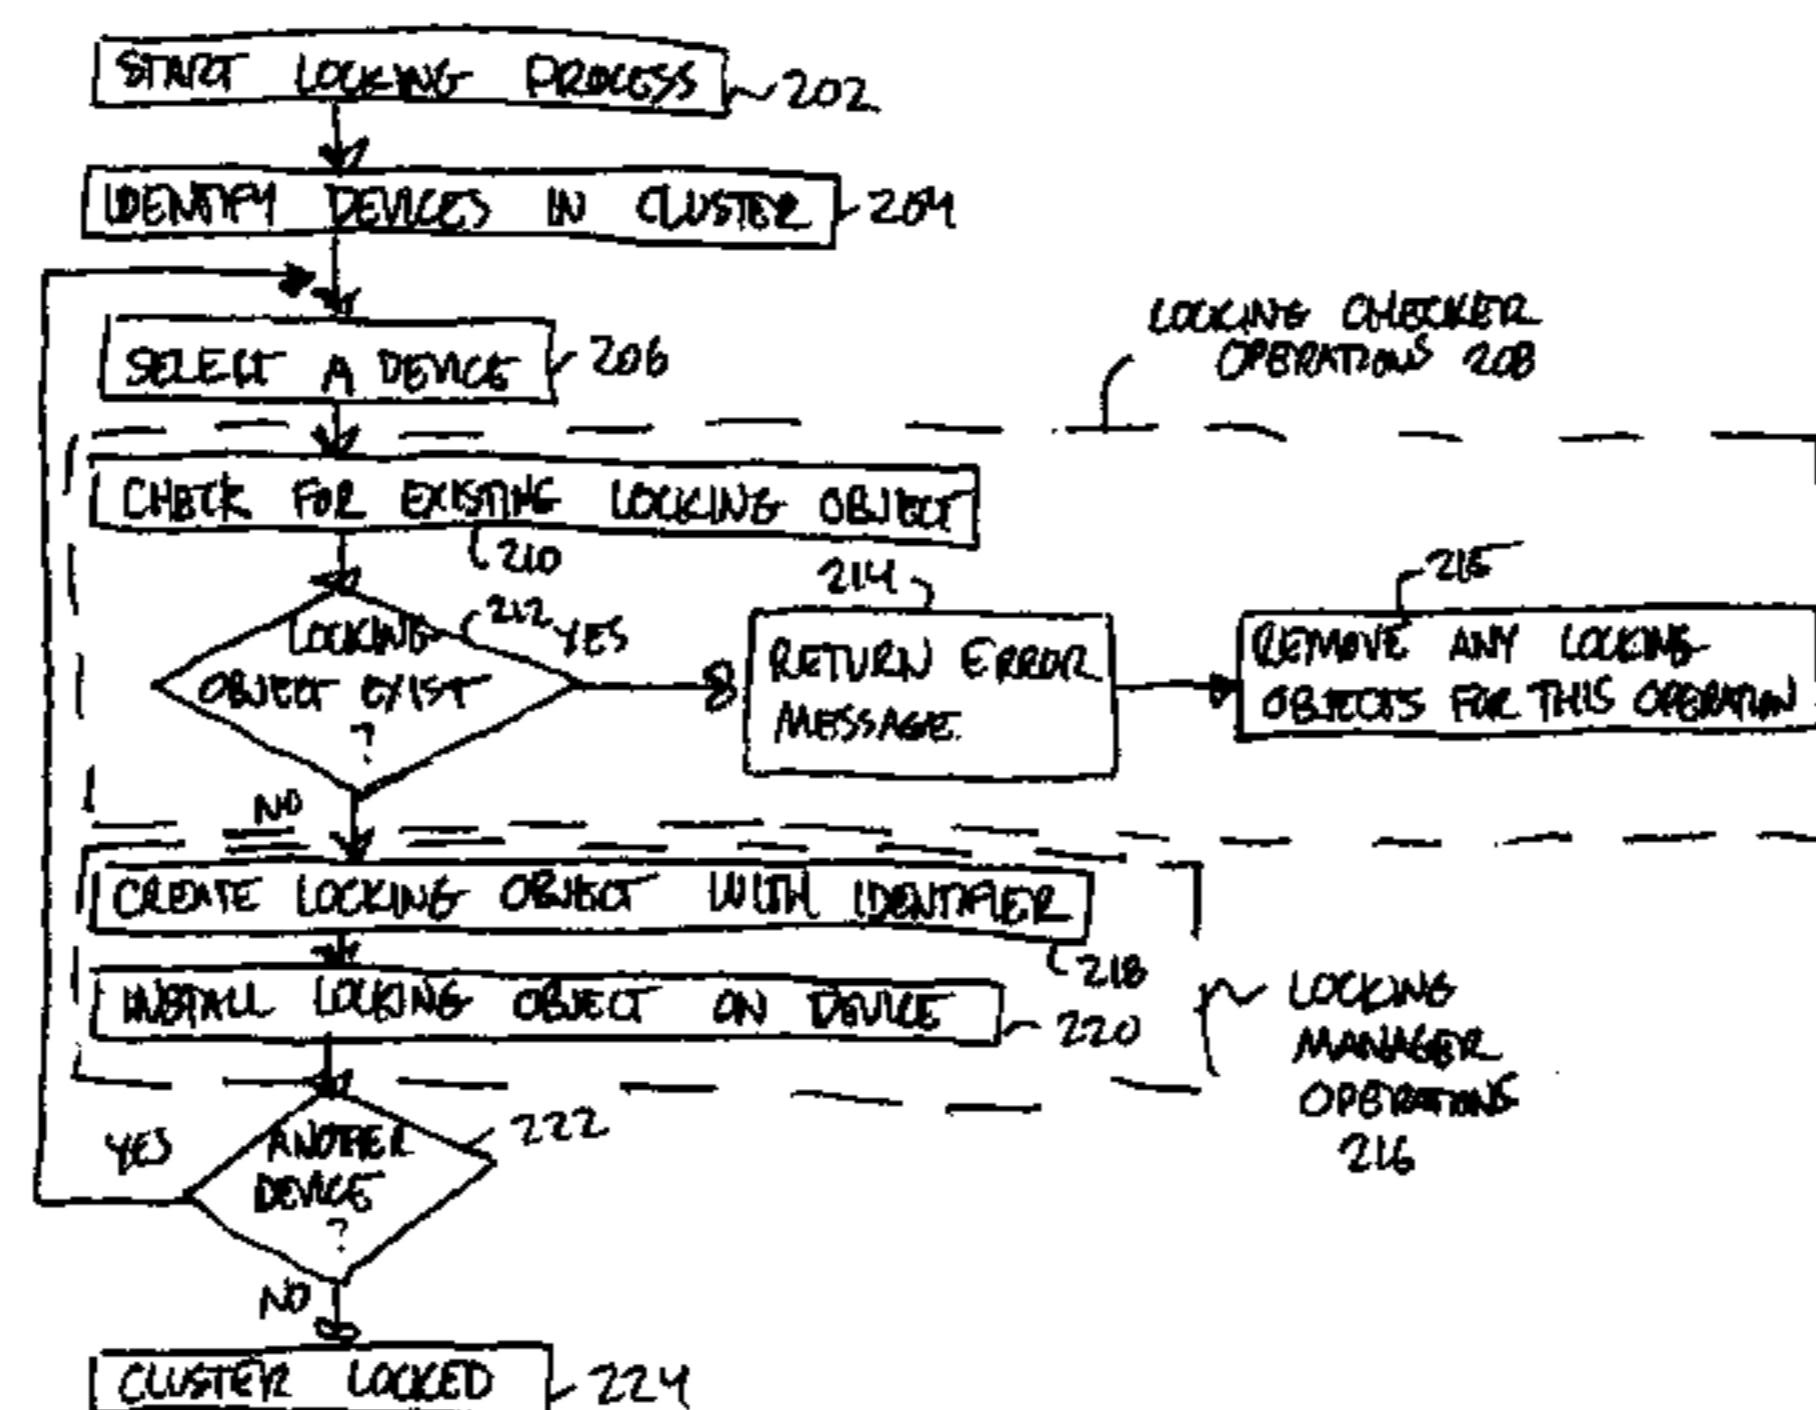 START LOCKING PROCESS 202
IDENTIFY DEVICES IN CLUSTER 204
SELECT A DEVICE 206
LOCKING CHECKER
OPERATIONS 208
CHECK FOR EXISTING LOCKING OBJECT
210
212 YES
LOCKING
OBJECT EXIST
?
214
RETURN ERROR
MESSAGE.
215
REMOVE ANY LOCKING
OBJECTS FOR THIS OPERATION
NO
CREATE LOCKING OBJECT WITH IDENTIFIER
218
INSTALL LOCKING OBJECT ON DEVICE 220
LOCKING
MANAGER
OPERATIONS
216
YES
ANOTHER
DEVICE
?
222
NO
CLUSTER LOCKED 224